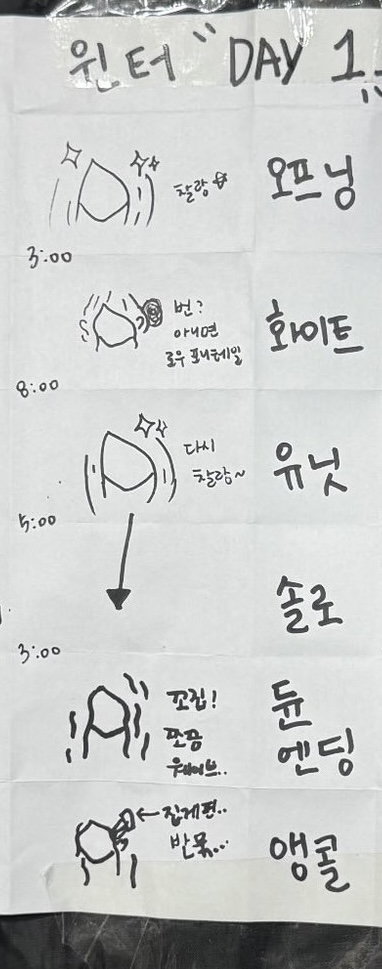 윈터 "DAY 1"
찰랑 오프닝
3:00
번?
아니면
로우 포니테일
화이트
8:00
다시
찰랑~
유닛
5:00
솔로
3:00
고집!
쪼끔
웨이브..
듄
엔딩
←집게핀..
반묶...
앵콜